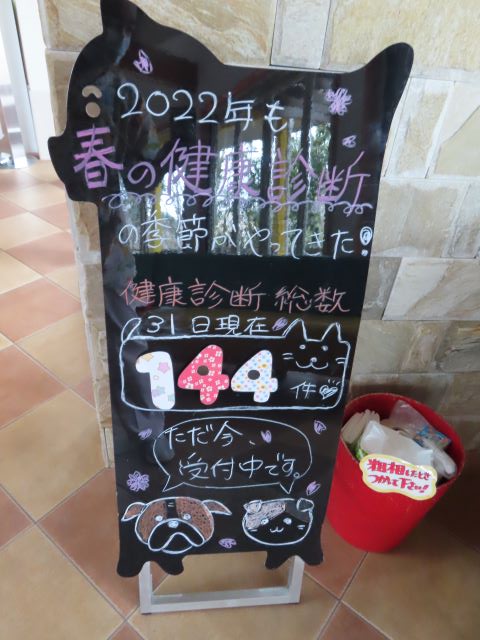 2022年も、
春の健康診断
の季節がやってきた！
健康診断 総数
31日現在
144
件
ただ今、
受付中です。
粗相したとき
つかって下さい！